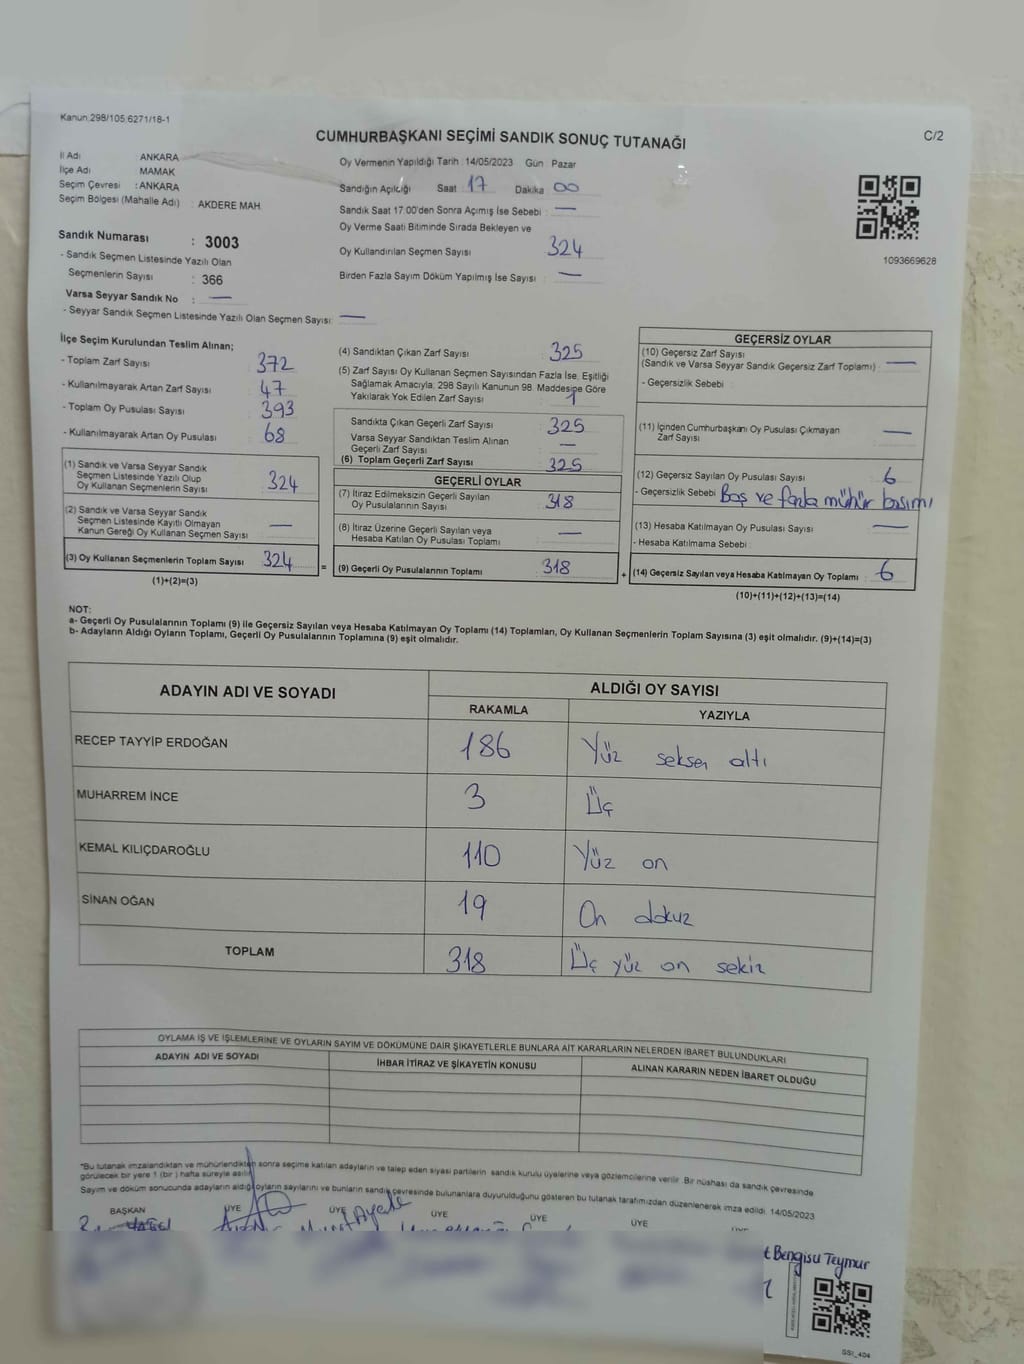 Kanun.298/105.6271/18-1
C/2
CUMHURBAŞKANI SEÇİMİ SANDIK SONUÇ TUTANAĞI
İl Adı ANKARA
İlçe Adı MAMAK
Seçim Çevresi : ANKARA
Seçim Bölgesi (Mahalle Adı) : AKDERE MAH.
Sandık Numarası : 3003
- Sandık Seçmen Listesinde Yazılı Olan
Seçmenlerin Sayısı : 366
Varsa Seyyar Sandık No : —
- Seyyar Sandık Seçmen Listesinde Yazılı Olan Seçmen Sayısı: —
Oy Vermenin Yapıldığı Tarih :14/05/2023 Gün Pazar
Sandığın Açılcığı Saat 17 Dakika 00
Sandık Saat 17:00'den Sonra Açımış İse Sebebi : —
Oy Verme Saati Bitiminde Sırada Bekleyen ve
Oy Kullandırılan Seçmen Sayısı : 324
Birden Fazla Sayım Döküm Yapılmış İse Sayısı : —
1093669628
İlçe Seçim Kurulundan Teslim Alınan;
- Toplam Zarf Sayısı : 372
- Kullanılmayarak Artan Zarf Sayısı : 47
- Toplam Oy Pusulası Sayısı : 393
- Kullanılmayarak Artan Oy Pusulası : 68
(1) Sandık ve Varsa Seyyar Sandık
Seçmen Listesinde Yazılı Olup
Oy Kullanan Seçmenlerin Sayısı 324
(2) Sandık ve Varsa Seyyar Sandık
Seçmen Listesinde Kayıtlı Olmayan
Kanun Gereği Oy Kullanan Seçmen Sayısı —
(3) Oy Kullanan Seçmenlerin Toplam Sayısı 324 =
(1)+(2)=(3)
(4) Sandıktan Çıkan Zarf Sayısı : 325
(5) Zarf Sayısı Oy Kullanan Seçmen Sayısından Fazla İse, Eşitliği
Sağlamak Amacıyla; 298 Sayılı Kanunun 98. Maddesine Göre
Yakılarak Yok Edilen Zarf Sayısı : 1
Sandıkta Çıkan Geçerli Zarf Sayısı : 325
Varsa Seyyar Sandıktan Teslim Alınan
Geçerli Zarf Sayısı : —
(6) Toplam Geçerli Zarf Sayısı : 325
GEÇERLİ OYLAR
(7) İtiraz Edilmeksizin Geçerli Sayılan
Oy Pusulalarının Sayısı : 318
(8) İtiraz Üzerine Geçerli Sayılan veya
Hesaba Katılan Oy Pusulası Toplamı : —
(9) Geçerli Oy Pusulalarının Toplamı : 318 +
GEÇERSİZ OYLAR
(10) Geçersiz Zarf Sayısı
(Sandık ve Varsa Seyyar Sandık Geçersiz Zarf Toplamı) : —
- Geçersizlik Sebebi :
(11) İçinden Cumhurbaşkanı Oy Pusulası Çıkmayan
Zarf Sayısı : —
(12) Geçersiz Sayılan Oy Pusulası Sayısı : 6
- Geçersizlik Sebebi : Boş ve fazla mühür basımı
(13) Hesaba Katılmayan Oy Pusulası Sayısı : —
- Hesaba Katılmama Sebebi :
(14) Geçersiz Sayılan veya Hesaba Katılmayan Oy Toplamı : 6
(10)+(11)+(12)+(13)=(14)
NOT:
a- Geçerli Oy Pusulalarının Toplamı (9) ile Geçersiz Sayılan veya Hesaba Katılmayan Oy Toplamı (14) Toplamları, Oy Kullanan Seçmenlerin Toplam Sayısına (3) eşit olmalıdır. (9)+(14)=(3)
b- Adayların Aldığı Oyların Toplamı, Geçerli Oy Pusulalarının Toplamına (9) eşit olmalıdır.
ADAYIN ADI VE SOYADI ALDIĞI OY SAYISI
RAKAMLA YAZIYLA
RECEP TAYYİP ERDOĞAN 186 Yüz seksen altı
MUHARREM İNCE 3 Üç
KEMAL KILIÇDAROĞLU 110 Yüz on
SİNAN OĞAN 19 On dokuz
TOPLAM 318 Üç yüz on sekiz
OYLAMA İŞ VE İŞLEMLERİNE VE OYLARIN SAYIM VE DÖKÜMÜNE DAİR ŞİKAYETLERLE BUNLARA AİT KARARLARIN NELERDEN İBARET BULUNDUKLARI
ADAYIN ADI VE SOYADI İHBAR İTİRAZ VE ŞİKAYETİN KONUSU ALINAN KARARIN NEDEN İBARET OLDUĞU
*Bu tutanak imzalandıktan ve mühürlendikten sonra seçime katılan adayların ve talep eden siyasi partilerin sandık kurulu üyelerine veya gözlemcilerine verilir. Bir nüshası da sandık çevresinde
görülecek bir yere 1 (bir) hafta süreyle asılır.
Sayım ve döküm sonucunda adayların aldığı oyların sayılarını ve bunların sandık çevresinde bulunanlara duyurulduğunu gösteren bu tutanak tarafımızdan düzenlenerek imza edildi. 14/05/2023
BAŞKAN ÜYE ÜYE ÜYE ÜYE ÜYE
t Bengisu Teymur